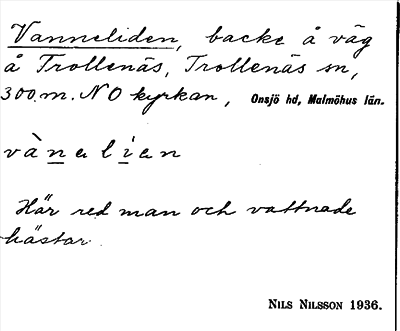 Vanneliden, backe å väg
å Trollenäs, Trollenäs sn,
300 m. NO kyrkan, Onsjö hd, Malmöhus län.
vànelien
Här red man och vattnade
hästar.
NILS NILSSON 1936.